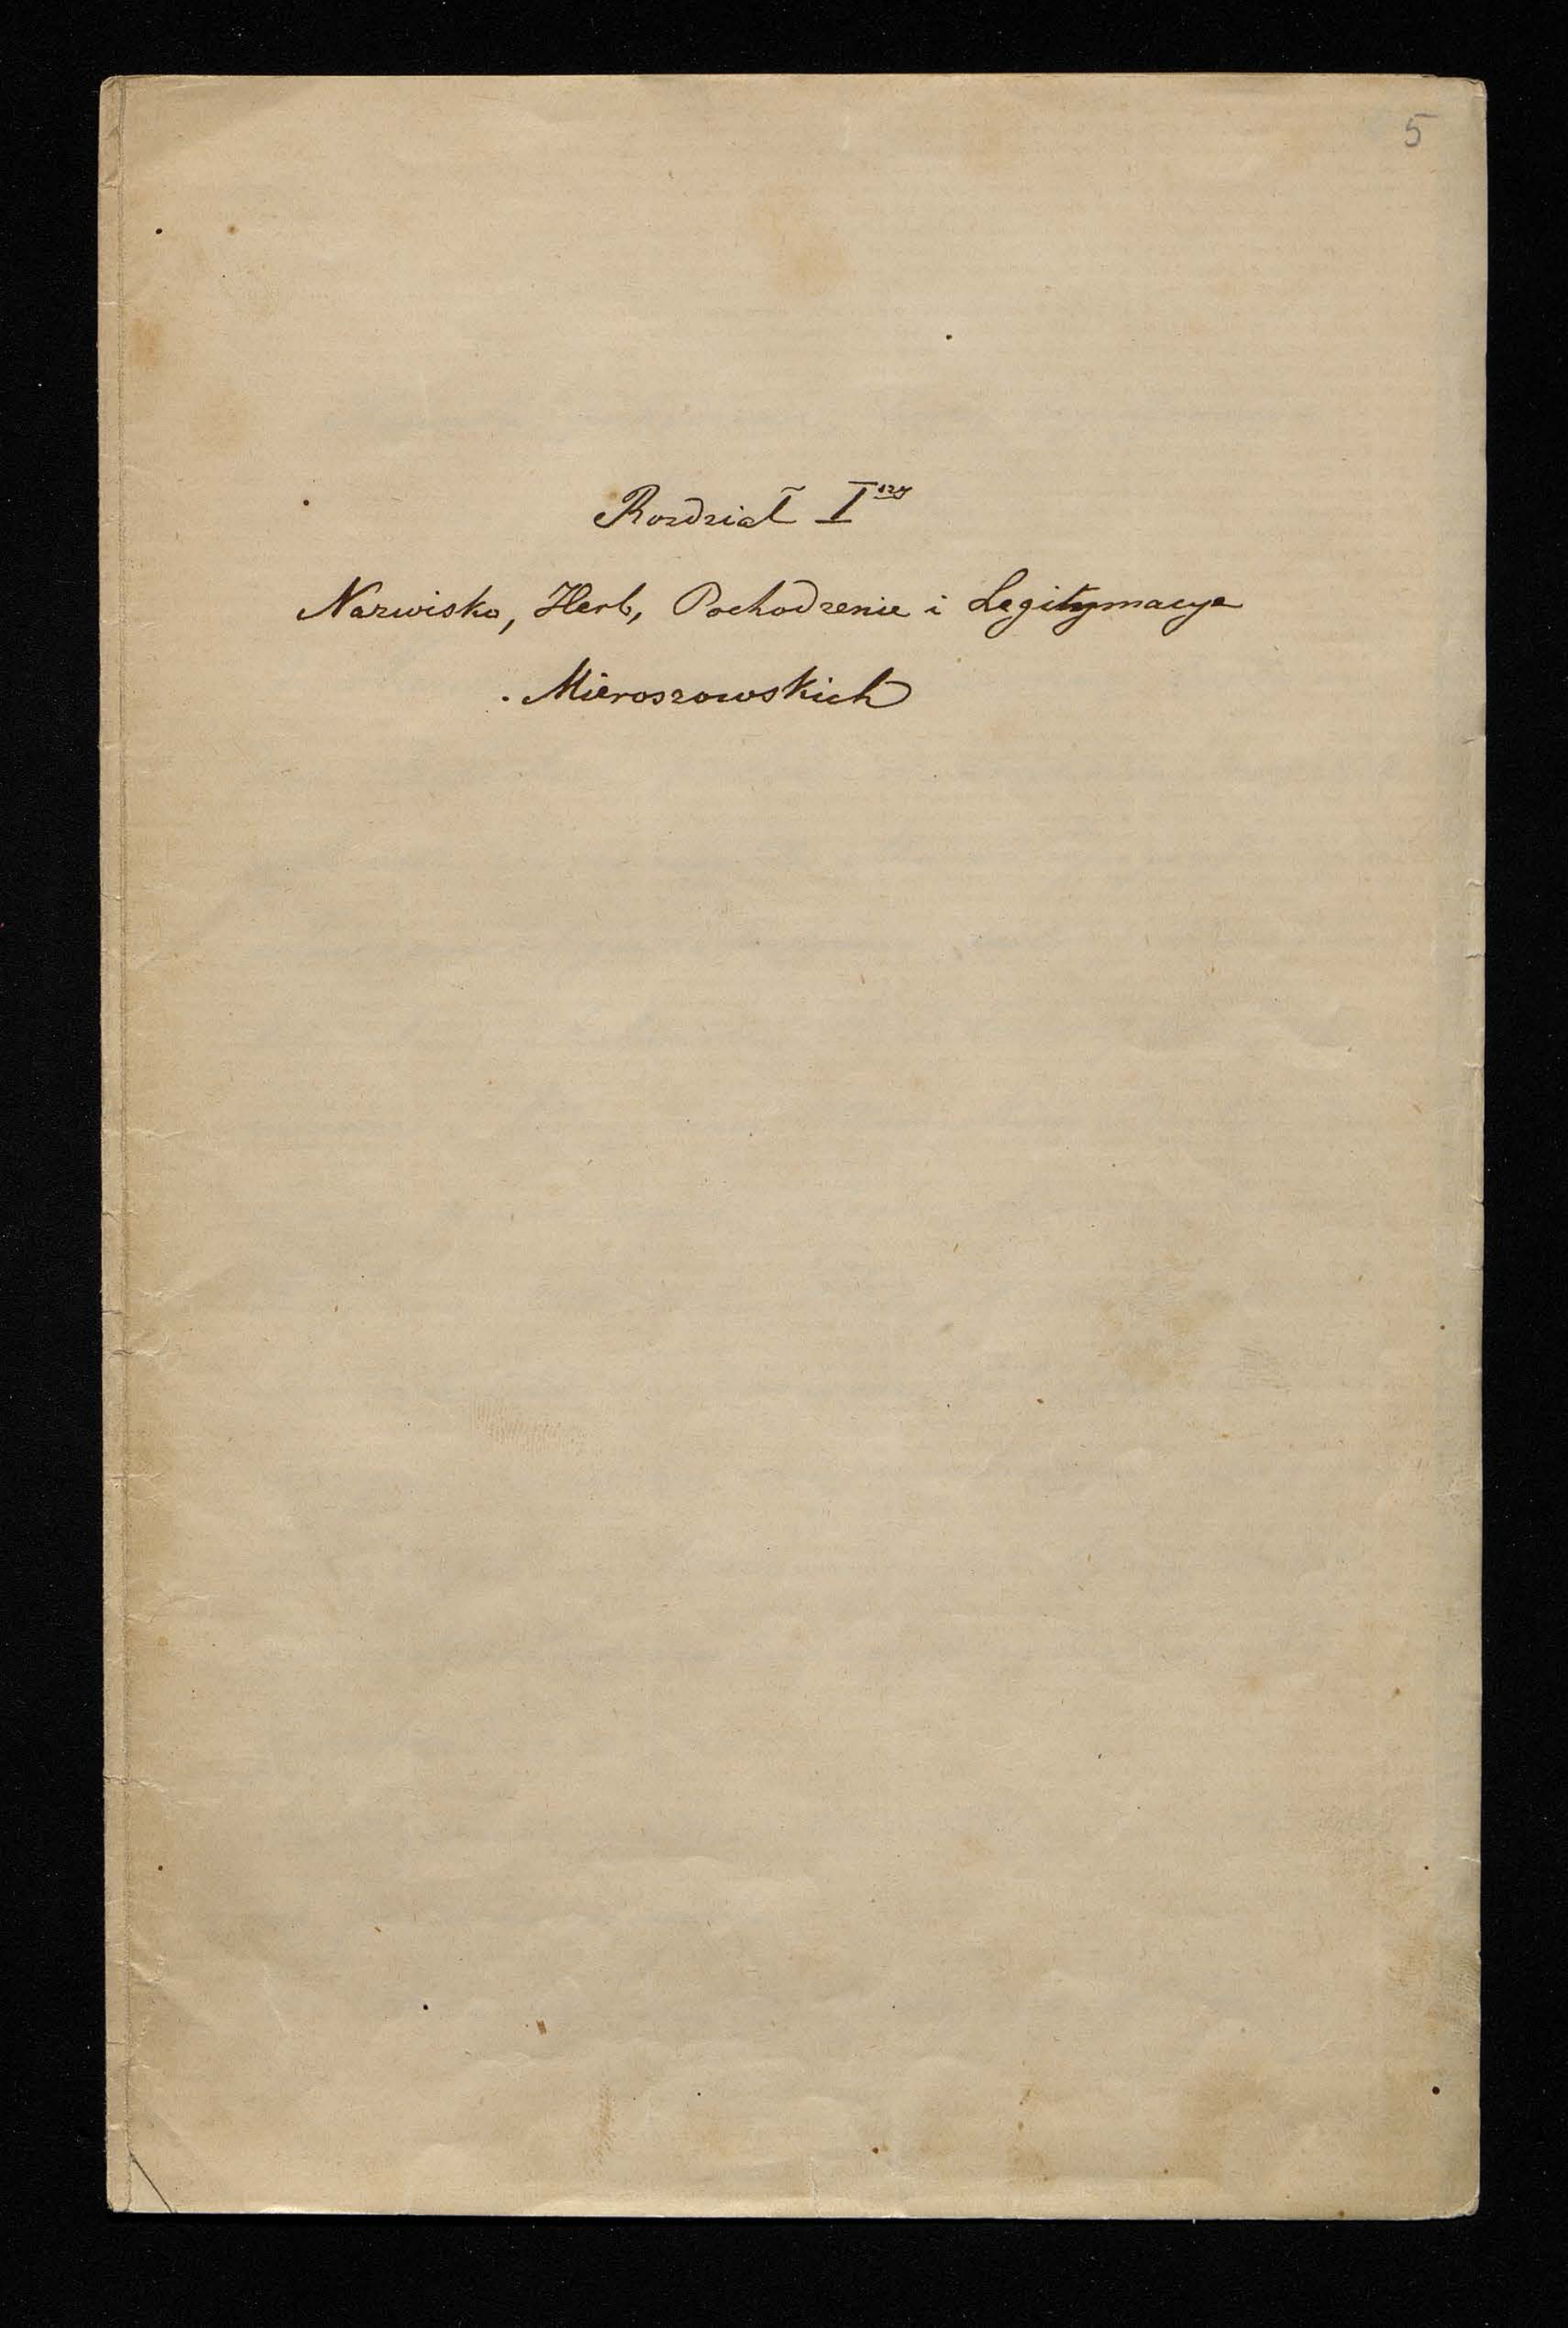 5
Rozdział Iszy
Nazwisko, Herb, Pochodzenie i Legitymacye
Mieroszowskich